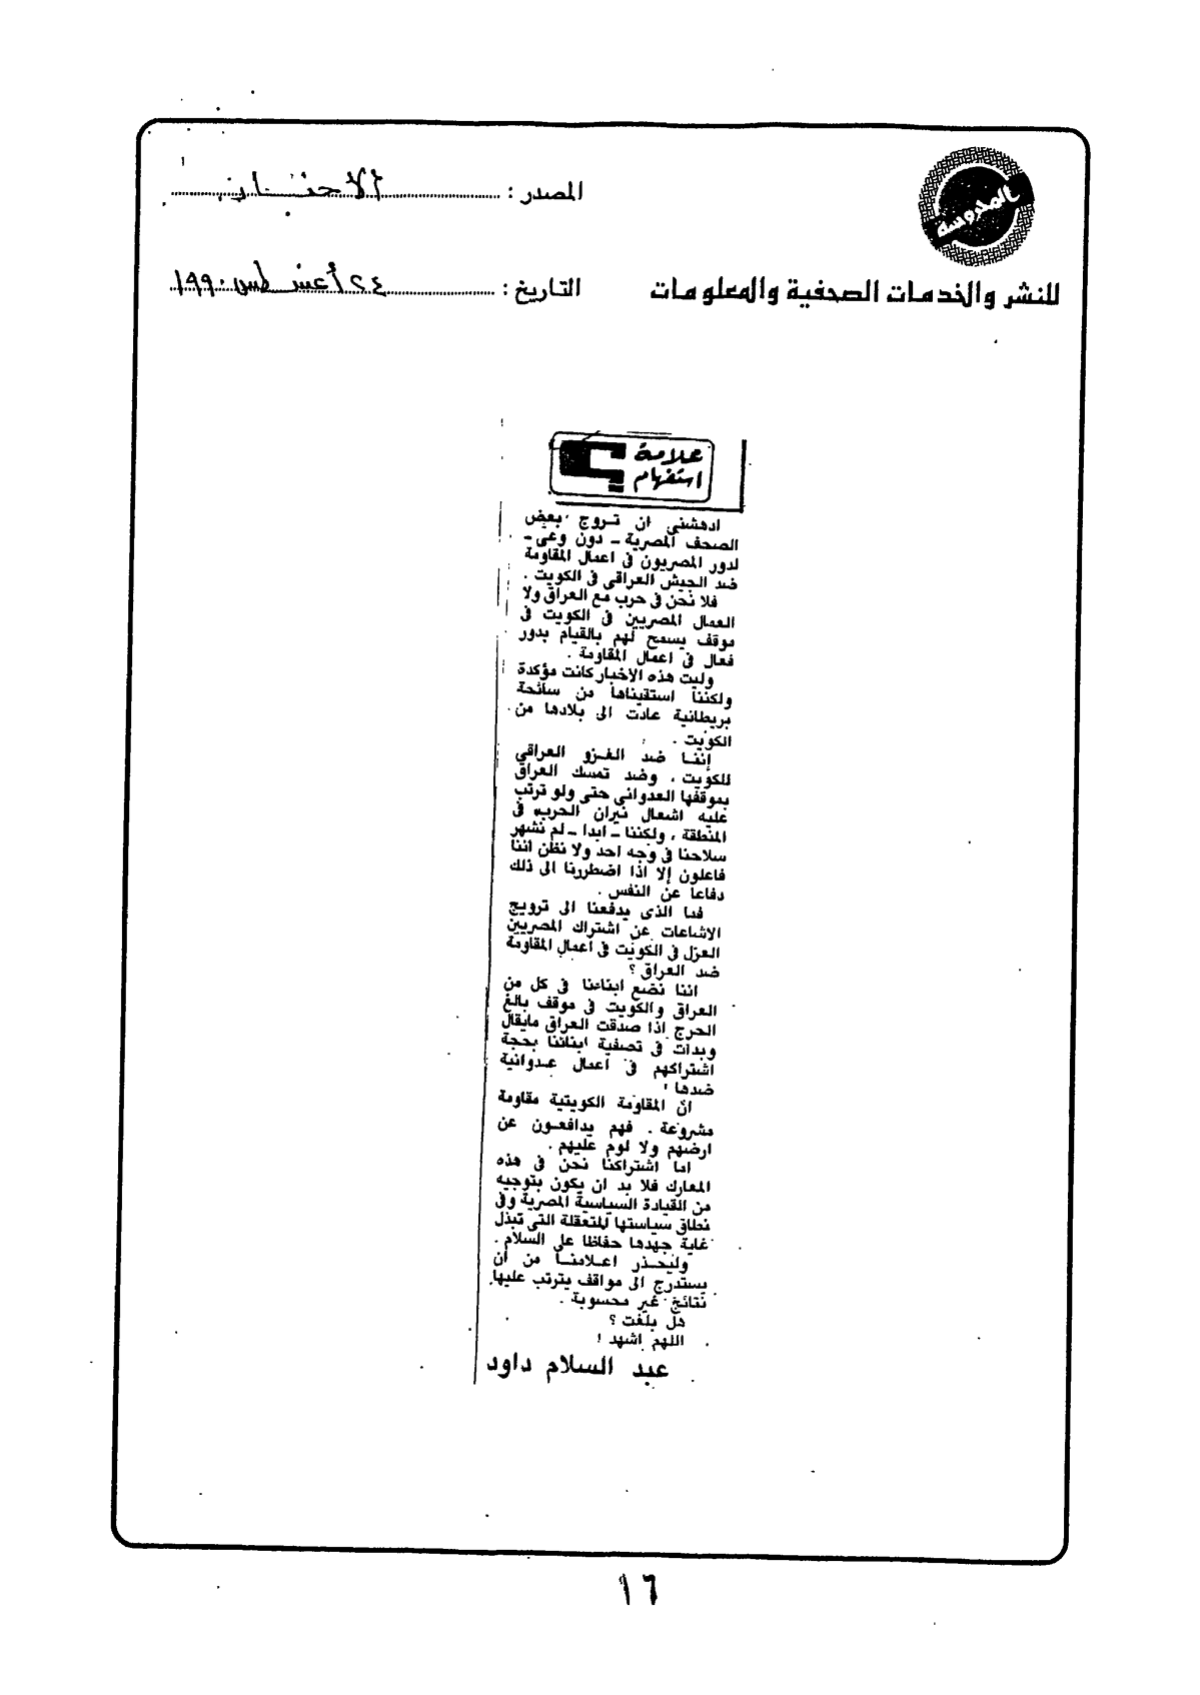 المحروسة
للنشر والخدمات الصحفية والمعلومات
المصدر : الأخبار
التاريخ : ٢٤ أغسطس ١٩٩٠
علامة
استفهام
ادهشنى ان تروج بعض
الصحف المصرية - دون وعى -
لدور المصريون فى اعمال المقاومة
ضد الجيش العراقى فى الكويت .
فلا نحن فى حرب مع العراق ولا
العمال المصريين فى الكويت فى
موقف يسمح لهم بالقيام بدور
فعال فى اعمال المقاومة .
وليت هذه الاخبار كانت مؤكدة
ولكننا استقيناها من سائحة
بريطانية عادت الى بلادها من
الكويت .
إننا ضد الغزو العراقي
للكويت ، وضد تمسك العراق
بموقفها العدوانى حتى ولو ترتب
عليه اشعال نيران الحرب فى
المنطقة ، ولكننا - ابدا - لم نشهر
سلاحنا فى وجه احد ولا نظن اننا
فاعلون إلا اذا اضطررنا الى ذلك
دفاعا عن النفس .
فما الذى يدفعنا الى ترويج
الاشاعات عن اشتراك المصريين
العزل فى الكويت فى اعمال المقاومة
ضد العراق ؟
اننا نضع ابناءنا فى كل من
العراق والكويت فى موقف بالغ
الحرج اذا صدقت العراق مايقال
وبدأت فى تصفية ابنائنا بحجة
اشتراكهم فى اعمال عدوانية
ضدها !
ان المقاومة الكويتية مقاومة
مشروعة . فهم يدافعون عن
ارضهم ولا لوم عليهم .
اما اشتراكنا نحن فى هذه
المعارك فلا بد ان يكون بتوجيه
من القيادة السياسية المصرية وفى
نطاق سياستها المتعقلة التى تبذل
غاية جهدها حفاظا على السلام .
وليحذر اعلامنا من ان
يستدرج الى مواقف يترتب عليها
نتائج غير محسوبة .
هل بلغت ؟
اللهم اشهد !
عبد السلام داود
١٦